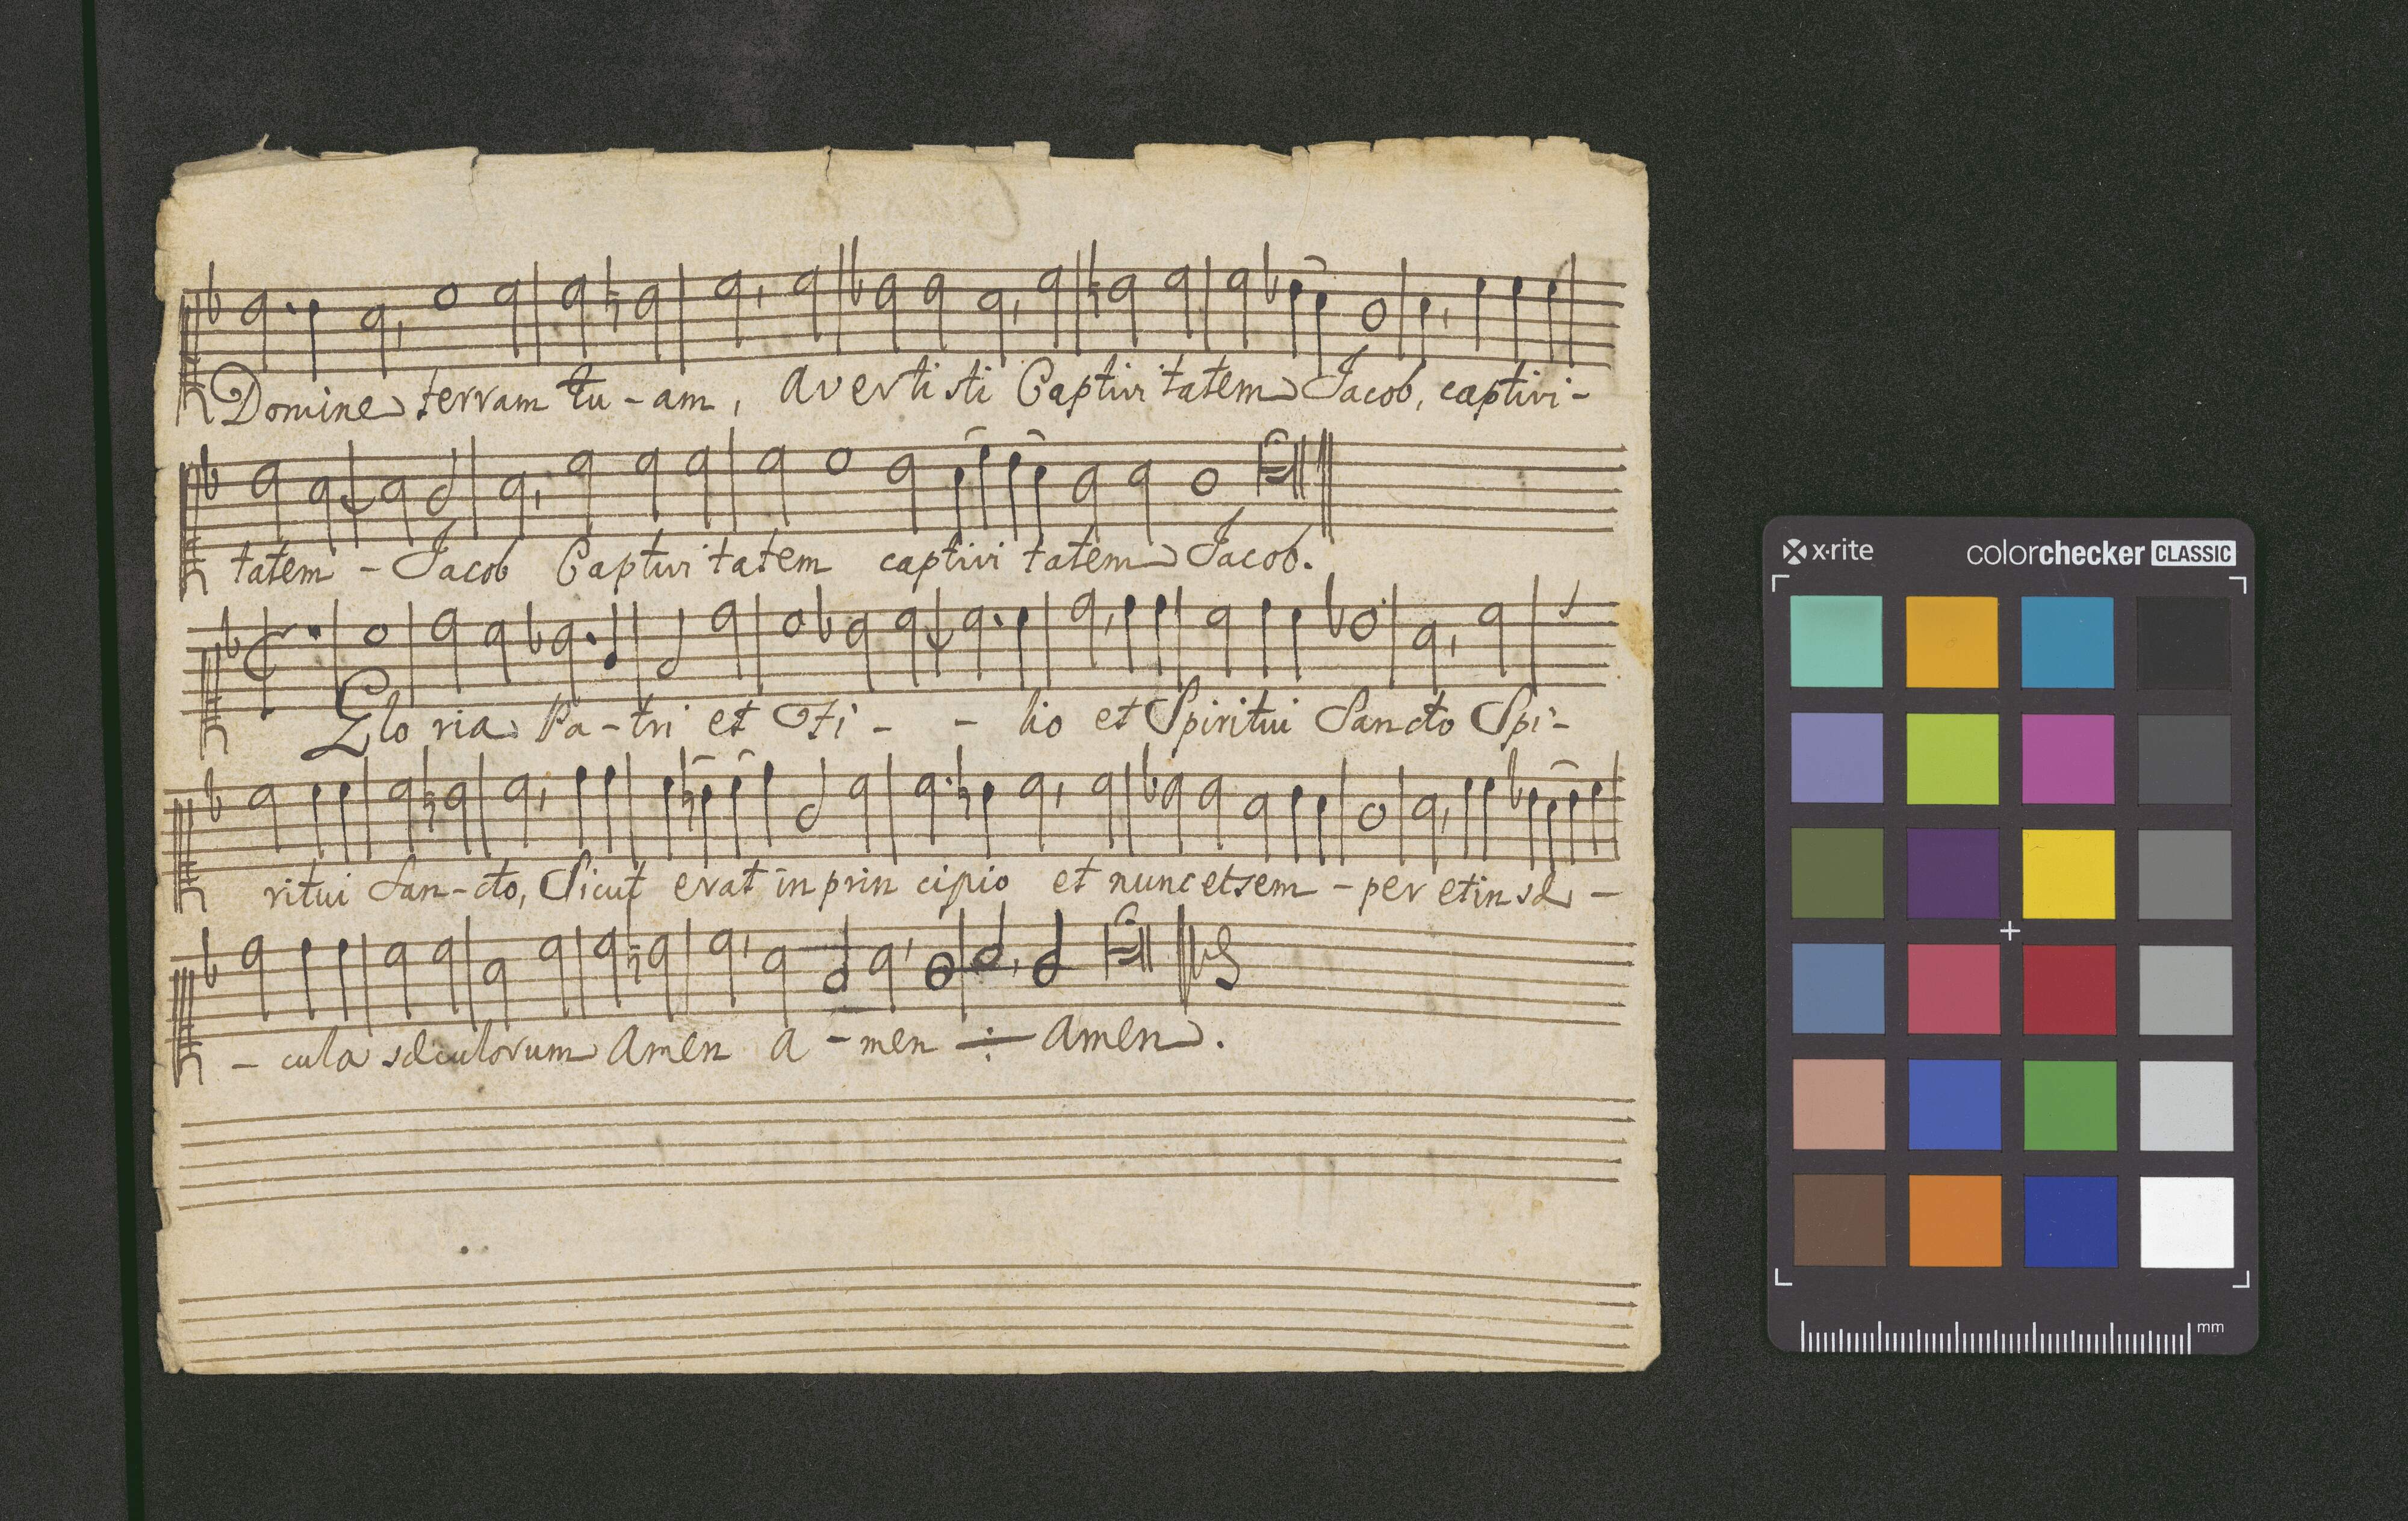 Domine terram tu - am, avertisti Captivitatem Jacob, captivi -
tatem - Jacob Captivitatem captivitatem Jacob.
Gloria Pa - tri et Fi - - lio et Spiritui Sancto Spi -
ritui San - cto, Sicut erat in principio et nunc et sem - per et in sæ -
- cula sæculorum Amen a - men ÷ amen.
x·rite colorchecker CLASSIC
mm